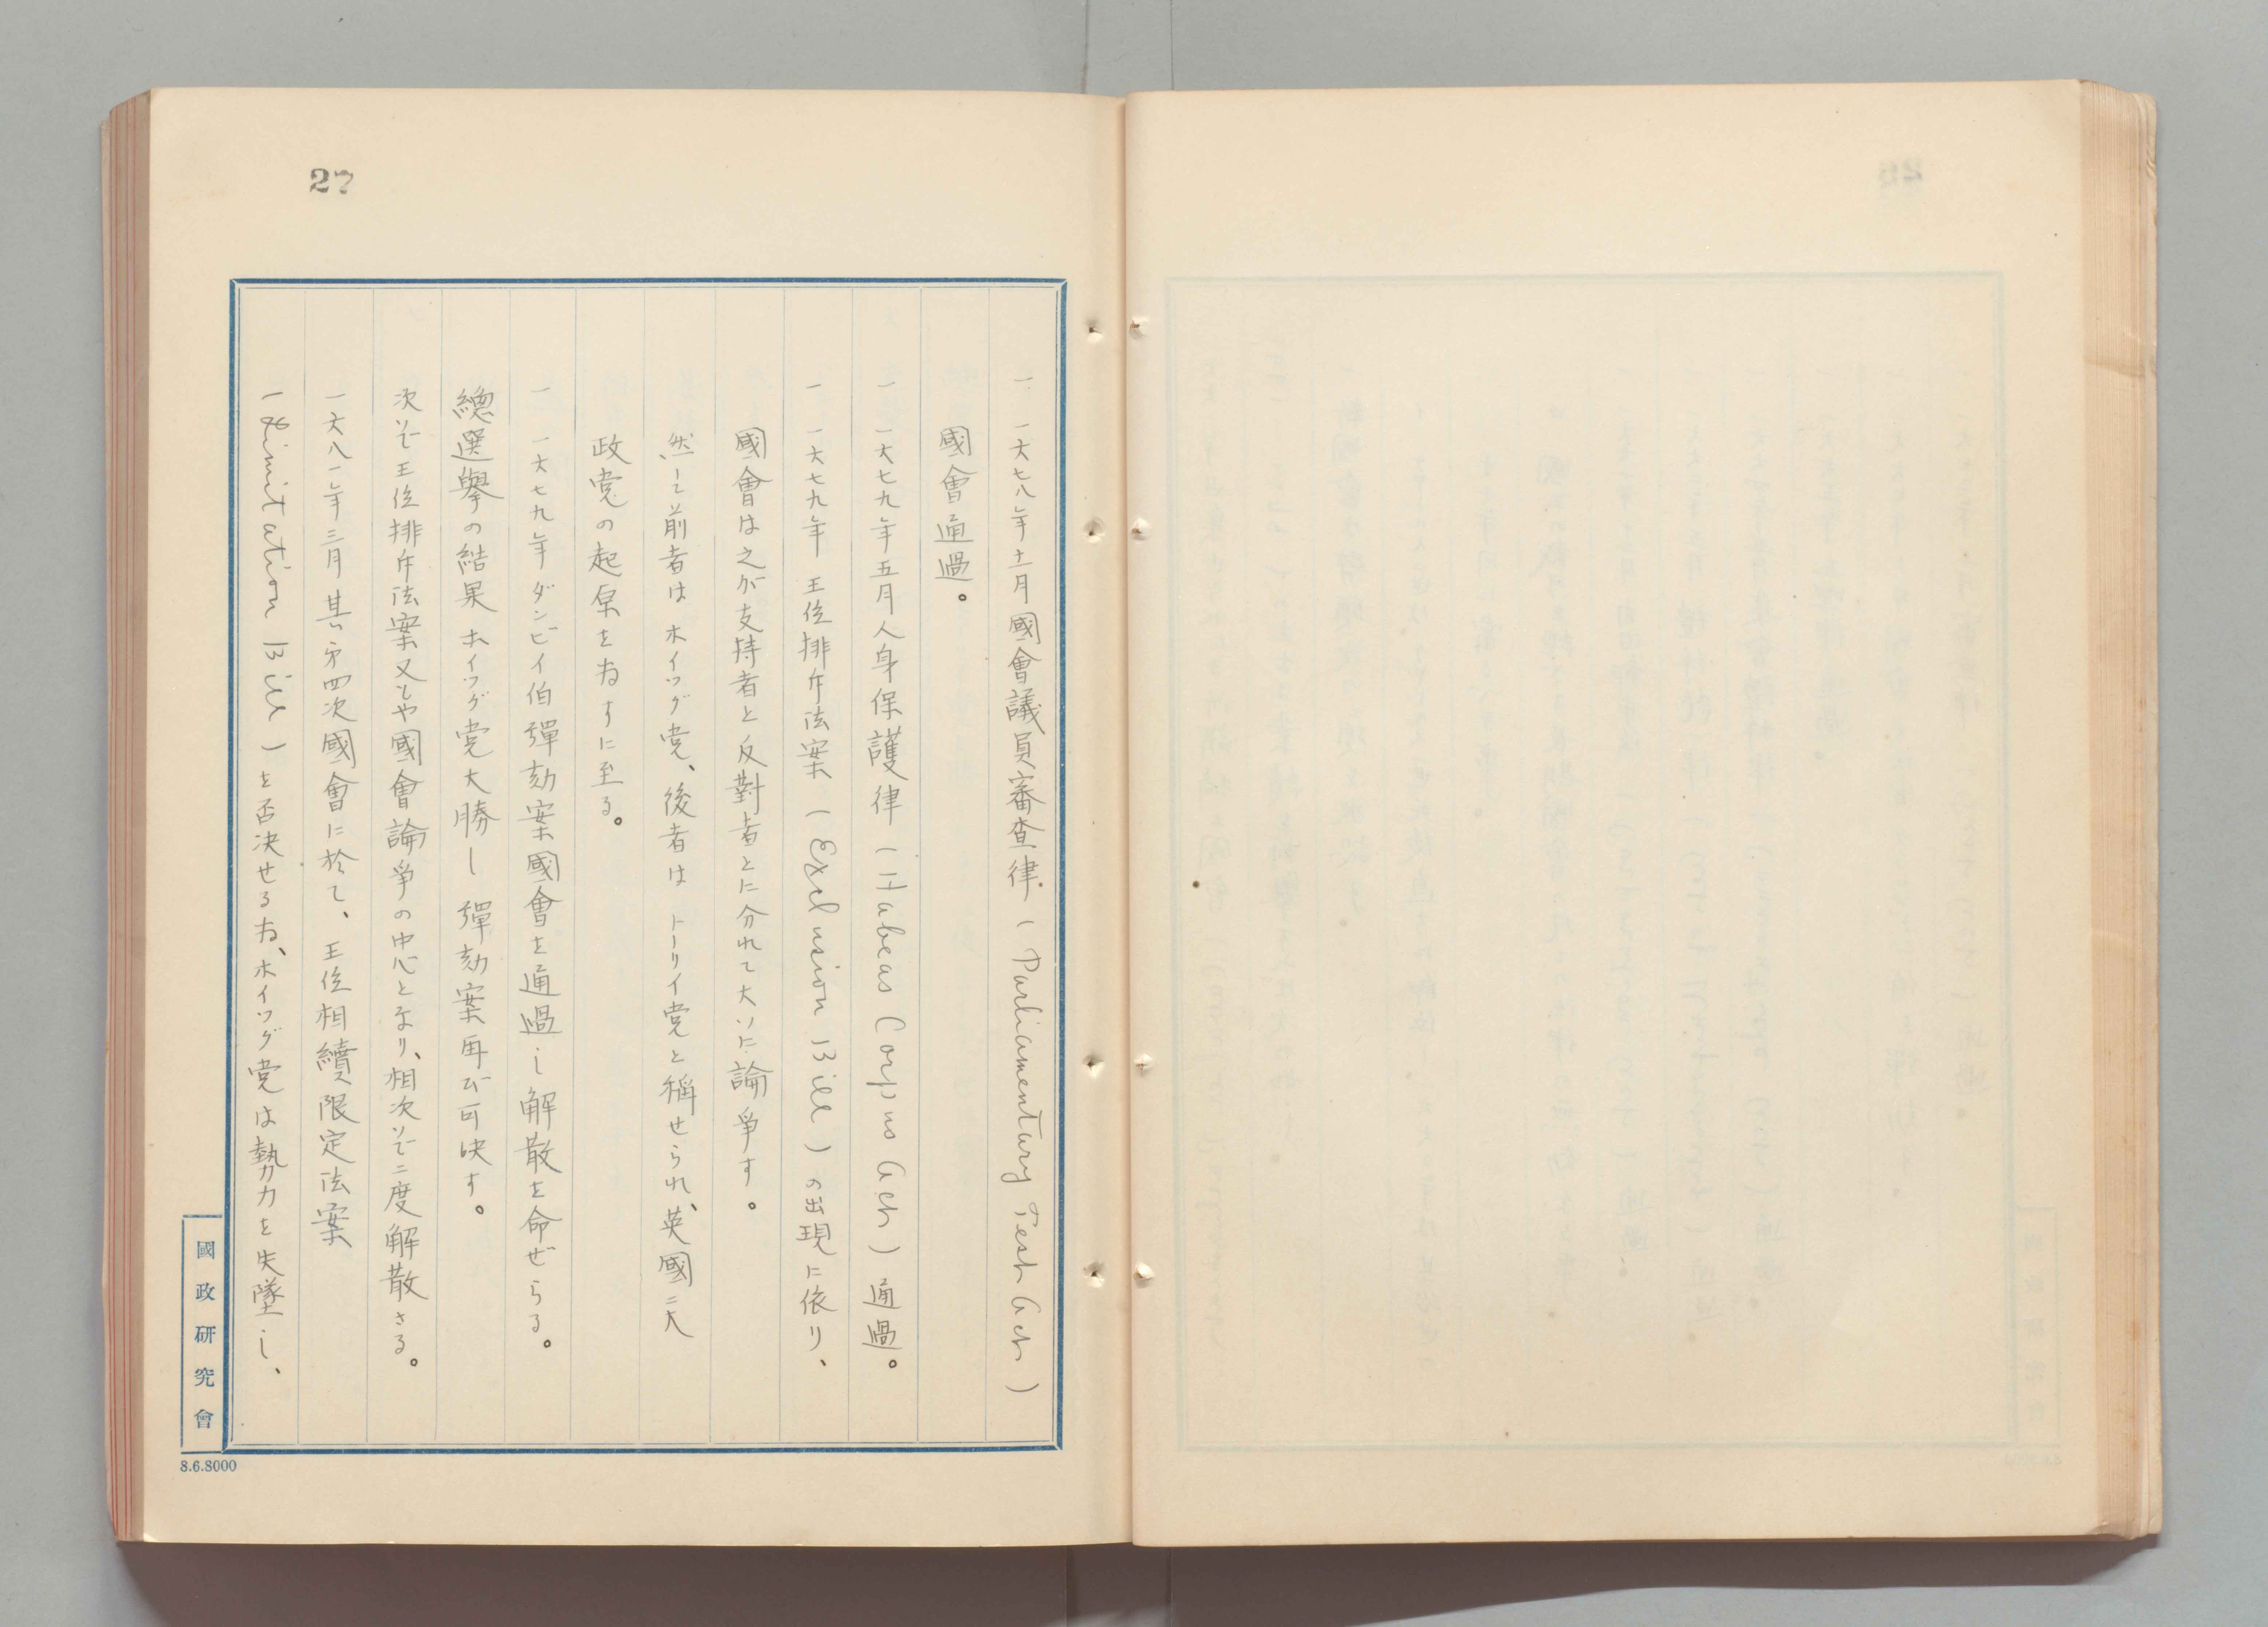 27
一 一六七八年十一月國會議員審査律（Parliamentary Test Act）
國會通過。
一 一六七九年五月人身保護律（Habeas Corpus Act）通過。
一 一六七九年 王位排斥法案（Exclusion Bill）の出現に依り、
國會は之が支持者と反對者とに分れて大いに論爭す。
然して前者はホイッグ党、後者はトーリイ党と稱せられ、英國二大
政党の起原を為すに至る。
一 一六七九年ダンビイ伯彈劾案國會を通過し解散を命ぜらる。
總選擧の結果ホイッグ党大勝し彈劾案再び可決す。
次いで王位排斥法案又もや國會論爭の中心となり、相次いで二度解散さる。
一六八一年三月其の第四次國會に於て、王位相續限定法案
（Limitation Bill）を否決せる為、ホイッグ党は勢力を失墜し、
國政研究會
8.6.8000